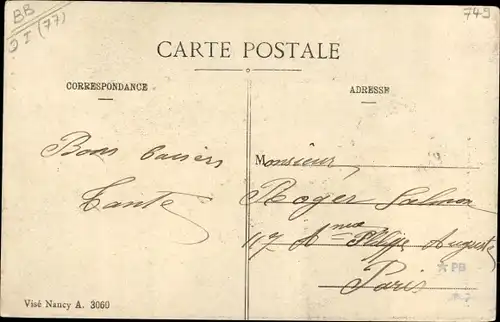 BB
JI (77)
749
CARTE POSTALE
CORRESPONDANCE
ADRESSE
Bons baisers
Tante
Monsieur
Roger Salmon
117 Anue Philippe Auguste
Paris
* PB
Visé Nancy A. 3060